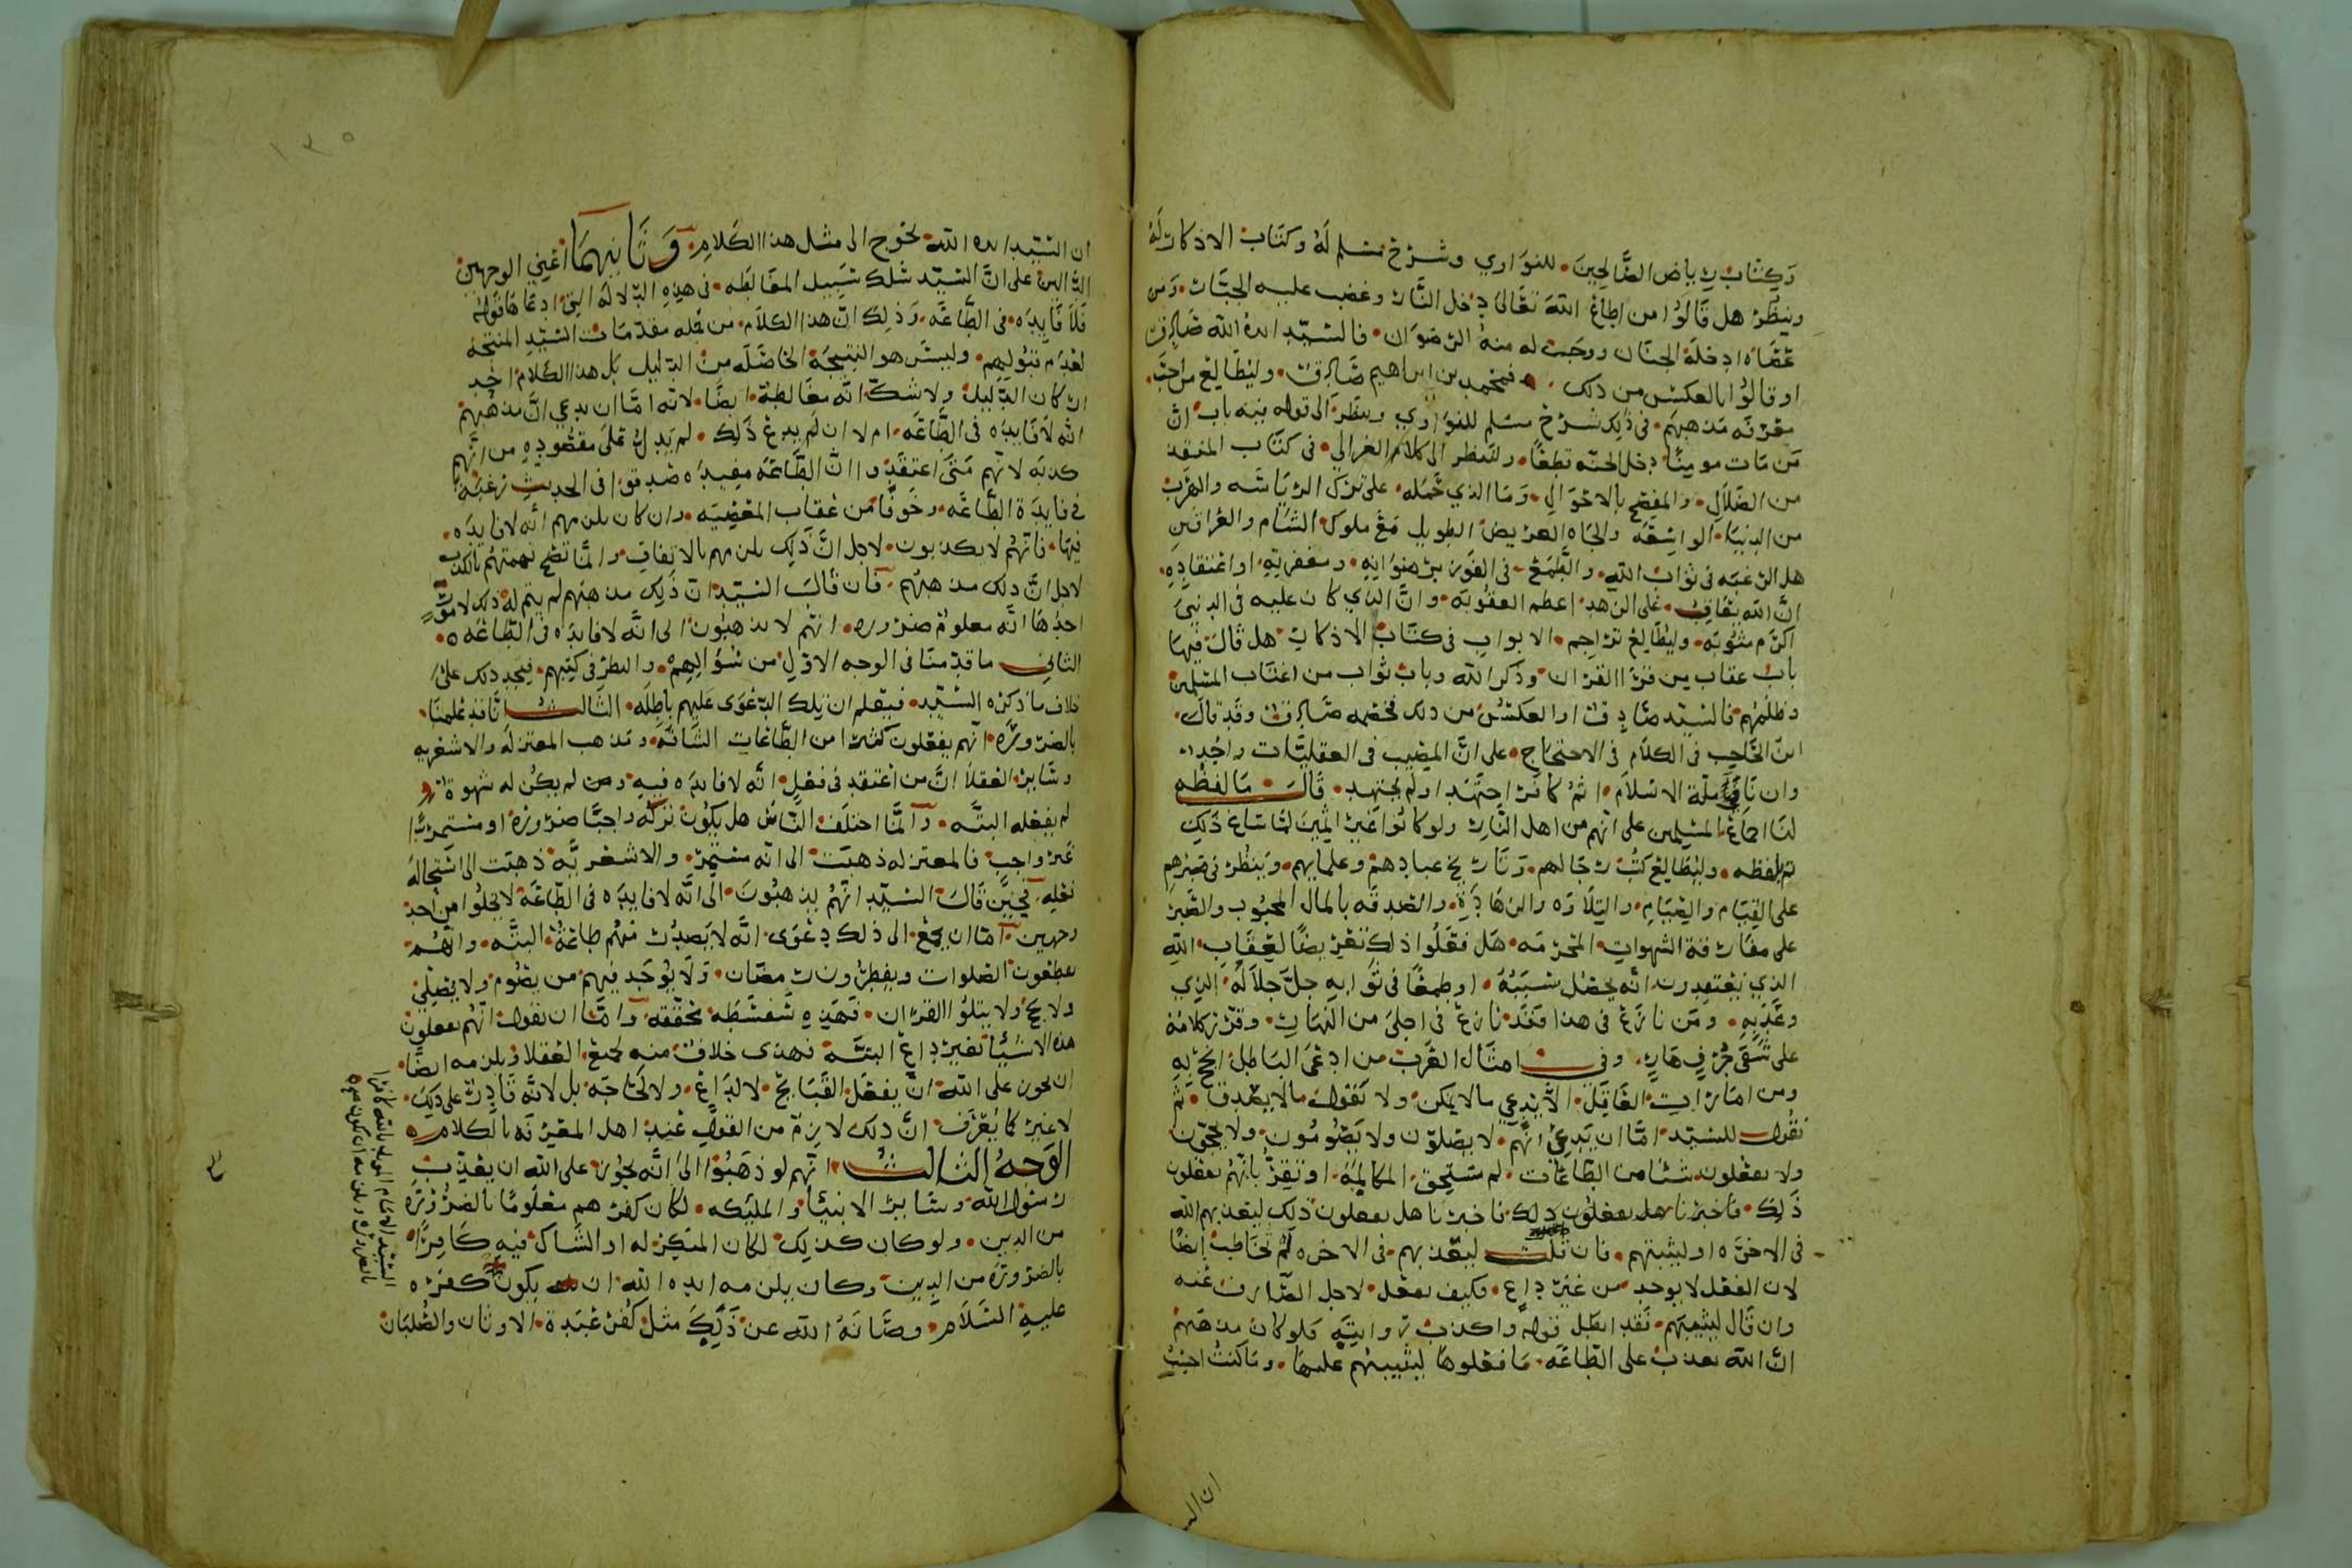 وَكِتَابَ رِيَاض الصَّالِحِينَ للنوَاوي وشرْح مسلم لَهُ وكتَابَ الاذكار لَهُ
وينظُرْ هل قَالوُا من اطاعَ اللهَ تعَالى دخل النَّار وغضب عليه الجبَّار ومَن
عصَاه ادخلهُ الجنَان ووجَبَ له منهُ الرضوَان فالسّيّد ايدهُ الله صَادق
او قالوُا بالعكس من ذلك فمحمد بن ابراهيم صَادق وليُطَالِعْ من احَبّ
معرفَه مَذهبهَم في ذَلِكَ شرْح مسْلم للنوَاوي وينظرْ الى قوله فيه باب انَّ
مَن مَات مومنًا دخل الجنّه قطعًا ولينظر الى كلام الغزالي في كتَاب المنقذ
من الضّلَالِ والمفصح بالاحْوَالِ وَمَا الذي حَمَله على تركِ الريَاسَه والهرَب
من الدنيَا الواسِعَه والجَاه العريض الطويل مَعَ ملوك الشَام والعراقَينِ
هل الرغبَه في ثوَاب اللهِ والطَّمَعْ في الفَوز برضوَانِهِ ومغفرتِهِ او اعتقادِهِ
انَّ الله يعَاقِبُ على الزهد اعظم العقُوبَه وانَّ الذي كان عليه في الدنيَى
اكرَم مثوُبَه وليُطَالِعْ تراجِم الابوابِ في كتَابُ الاذكار هل قَالَ فيهَا
بابُ عقاب من قرَا القرْان وذكَر الله وبابُ ثوَاب من اغتَاب المسْلمين
وظلمَهُم فالسَّيّد صَادِق او العكسُ من ذلك فخصمه صَادق وقد قالَ
ابنُ الحَاجب في الكلَام في الاحتجَاج على انَّ المصِيب في العقليَّات واحُد
وان نَافي ملّة الاسْلَام اثمُ كافر اجتَهَد اولَم يجتهد قَالَ مَا لفظُه
لنَا اجمَاعْ المسْلِمين على انّهم من اهل النَّارِ ولو كانُوا غَيرَ اثِمينَ لمَا سَاغ ذلِكَ
تم بلفظه وليُطَالِعْ كتُبُ رجَالهم وتَاريخ عبادِهمْ وعلمايهم وَينظُرْ في صَبرهِم
على القيَام والصِيَامِ والتِلَاوَه والزهَادَةِ والصَّدقَه بالمال المحبُوب والصَّبر
على مفَارقة الشهواتِ المحرّمَه هَل فعَلوُا ذلك تعريضًا لعِقَابِ اللهِ
الذي يعْتقِدون انَّه يحصُل بسَببُه او طمعًا في ثوابِهِ جلّ جلَاله الذي
وعَدَ بِهِ ومَن نازعَ في هذا فقد نازعَ في اجلَى من النهَارِ وقرّر كلامَه
على شَفَى جُرُفٍ هَارٍ وفي امثَال العَرب من ادعَى البَاطل انجحَ بِهِ
ومن امَارَاتِ العَاقِل الَّا يَدَّعي مالا يمكن ولا يَقول مالا يصَدق ثم
نقول للسّيّد امّا ان يَدعي انّهم لا يصَلوّن ولا يَصُومُون ولا يحجّون
ولا يفعَلون شيئًا من الطّاعَات لم تستَحِق المكَالمَه او تقِرُّ بانّهُم يفعَلون
ذَلِكَ فاخبرنا هل يفعلوُن ذلك فاخبرنا هل يفعلون ذلك ليعَذ بهم الله
في الاخرَه او ليثيبَهم فان قُلتَ ليعَذ بهم في الاخره لَمْ تخَاطَب ايضًا
لان الفعْل لا يوجد من غَيْر دَاعٍ فكيف يفعل لاجل الصَّارف عَنه
وان قَال ليُثيبَهم فَقد ابْطل قوله واكذب روايَته فلو كان مذهبُهم
انَّ الله يعذب على الطّاعَه مَا فعَلوهَا ليُثيبَهُم عليهَا ومَا كنتُ احْسِبُ
ان السيّد
١٣٥
ان السّيّد ايده اللهَ يحْوج الى مثل هذا الكَلامِ وَثَانِيهمَا اعْنِي الوجهين
الدَّالين على انَّ السّيّد سَلك سَبِيل المغَالَطه في هذِهِ الدّلاله الَّتِي ادعَاهَا قولهُ
فلا فَايدَه في الطّاعَه وَذلِكَ انّ هذا الكلام من جُمله مقدّمَات السّيّد المنتجهْ
لعَدم قبُولهم وليسَ هو النتِيجَة الحَاصَلَه من الدليل بَل هذا الكَلام احَد
اركان الدّليل ولاشك انّه مغَالطة ايضًا لانه امّا ان يدعي انَّ مذهبَهم
انّه لا فَايدَه في الطَّاعَه ام لا ان لَم يدع ذَلكَ لم يَدل على مقصُودِهِ من انّهم
كذبَه لانّهم متَى اعتقَدوا انّ الطَّاعَه مفيدَه صَدقوا في الحديث رغبَة
في فايدَة الطّاعَه وخَوفًا من عقاب المعْصِيَه وان كان يلزمهم انّه لا فايدَه
فيهَا فانّهُم لا يكذبون لاجل انَّ ذَلِكَ يلزمهم بالاتفاقِ وانّمَا تصحُ تهمتهُم بالكذب
لاجل انَّ ذلك مذهبُهم فان قَالَ السّيّد انّ ذَلِكَ مذهبُهم لم يتم له ذلك لامورٍ
احدُهَا انَّه معلوم ضَروره انّهم لا يذهبوُن الى انَّه لا فايدَه في الطّاعَه
الثاني ما قدّمنَا في الوجه الاوّلِ من سُؤالهِم والنظر في كتبهم فيجد ذلك على
خلاف مَا ذكره السّيّد فيعلم ان تلك الدّعْوَى عَليهم باطِلَه الثَّالث انّا قد عَلمنَا
بالضروره انّهم يفعَلون كثيرًا من الطَّاعَات الشَّاقَه ومَذهب المعتزلَه والاشعَريه
وسَاير العُقلَا انَّ من اعْتقد في فعْلٍ انّه لا فايدَه فيهِ ومن لم يكُن له شهوَة
لم يفعله البتَّه وَانّمَا اختلَف النَّاس هل يكوُن تركُه واجبًا ضرورَة او مستمِرًّا
غَير واجِب فالمعتزله ذهبَت الى انّه مستَمِر والاشعَريَّه ذهبَت الى استَحَاله
فعلِهِ فحِينَ قَالَ السّيّد انّهُم يذهبُونَ الى انَّه لا فايدَه في الطّاعَة لا يخلوُا من احد
وجهين امّا ان يجمَع الى ذلك دعْوَى انّه لا يَصدُر منهُم طاعَةُ البتَّه وانّهُم
يقطعون الصلوات ويفطِرُون رمضَان وَلا يُوجَد فيهم من يصُوم ولا يصَلّي
ولا يحج ولا يتلوُا القرْان فَهَذِهِ سَفسَطَه محَقّقه وامَّا ان يقول انّهُم يفعلون
هذه الاشيَا لغَيرْ دِاعٍ البتَّة فهذى خلاف منه لجميْع العُقلا ويلزمه ايضًا
ان يجوز على اللهَ انَّ يفعَل القبَايح لا لدَاعٍ ولا لحَاجَه بل لانّه قادِرٌ على ذلِكَ
لاغير كما يُعْرَف انَّ ذلك لازمٌ من القول عندَ اهل المعْرفَه بالكلام
الوَجهُ الثالثُ انّهم لو ذهَبُوا الىَ انّه يجُوز على الله ان يعَذّبَ
رسُول الله وسَاير الانبيَا والمليَكه لكان كفرهم معْلومًا بالضرُورَه
من الدين ولو كان كذلِك لكان المنكِر له او الشَّاك فيهِ كَافرًا
بالضرورَه من الدين وكان يلزمه ايده الله ان يكون كفرَه
عليهِ السَّلَام وصَانَهُ الله عن ذَلِكَ مثل كُفرْ عَبَدة الاوثان والصُلبَان